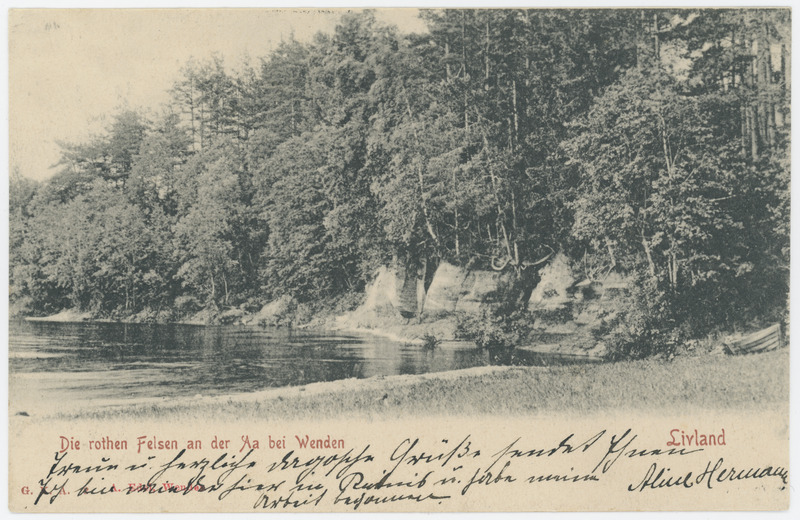 Die rothen Felsen an der Aa bei Wenden
Livland
Treu u. herzliche Grüße sendet Ihnen
Ich bin wieder hier in u. habe meine
Arbeit begonnen.
Aline Hermann
G. A.